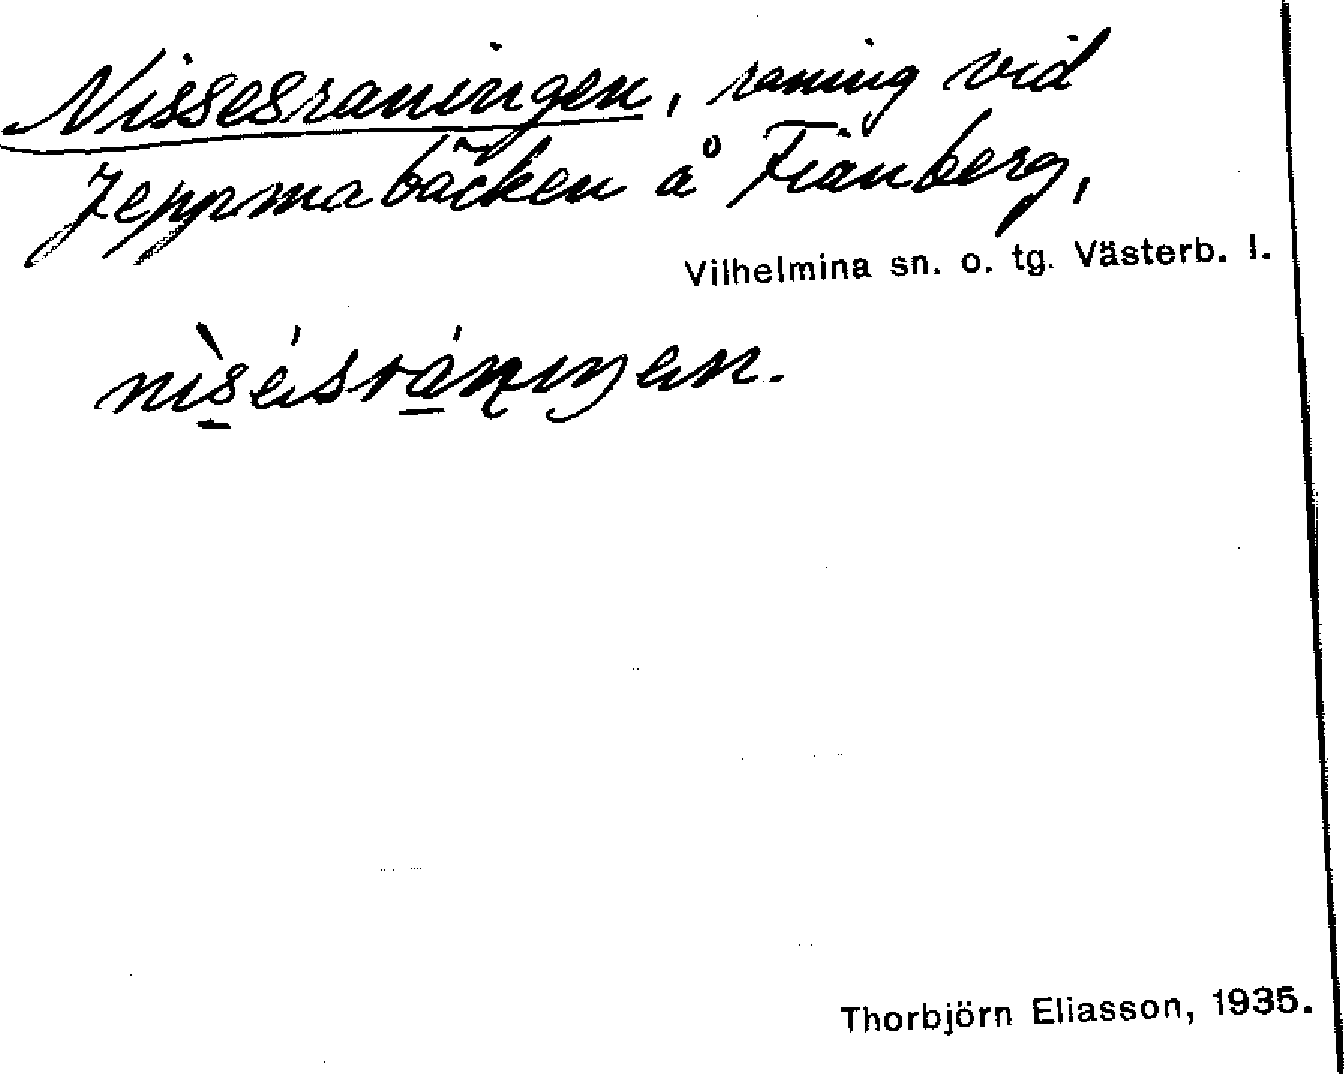 Nissesraningen, raning vid
Jeppmabäcken å Fianberg,
Vilhelmina sn. o. tg. Västerb. l.
Thorbjörn Eliasson, 1935.